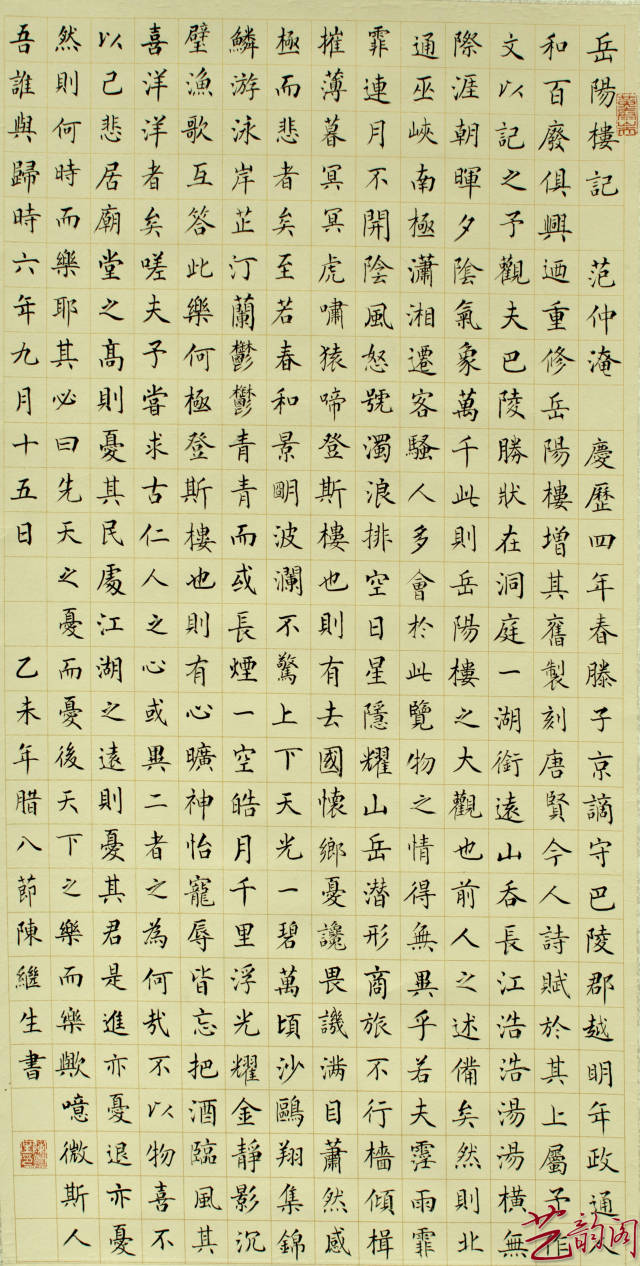 岳陽樓記 范仲淹 慶歷四年春滕子京謫守巴陵郡越明年政通人
和百廢俱興迺重修岳陽樓增其舊製刻唐賢今人詩賦於其上屬予作
文以記之予觀夫巴陵勝狀在洞庭一湖銜遠山吞長江浩浩湯湯橫無
際涯朝暉夕陰氣象萬千此則岳陽樓之大觀也前人之述備矣然則北
通巫峽南極瀟湘遷客騷人多會於此覽物之情得無異乎若夫霪雨霏
霏連月不開陰風怒號濁浪排空日星隱耀山岳潛形商旅不行檣傾楫
摧薄暮冥冥虎嘯猿啼登斯樓也則有去國懷鄉憂讒畏譏满目蕭然感
極而悲者矣至若春和景明波瀾不驚上下天光一碧萬頃沙鷗翔集錦
鱗游泳岸芷汀蘭鬱鬱青青而或長煙一空皓月千里浮光耀金靜影沉
璧漁歌互答此樂何極登斯樓也則有心曠神怡寵辱皆忘把酒臨風其
喜洋洋者矣嗟夫予嘗求古仁人之心或異二者之為何哉不以物喜不
以己悲居廟堂之高則憂其民處江湖之遠則憂其君是進亦憂退亦憂
然則何時而樂耶其必曰先天之憂而憂後天下之樂而樂歟噫微斯人
吾誰與歸時六年九月十五日 乙未年腊八節陳継生書
艺韵阁